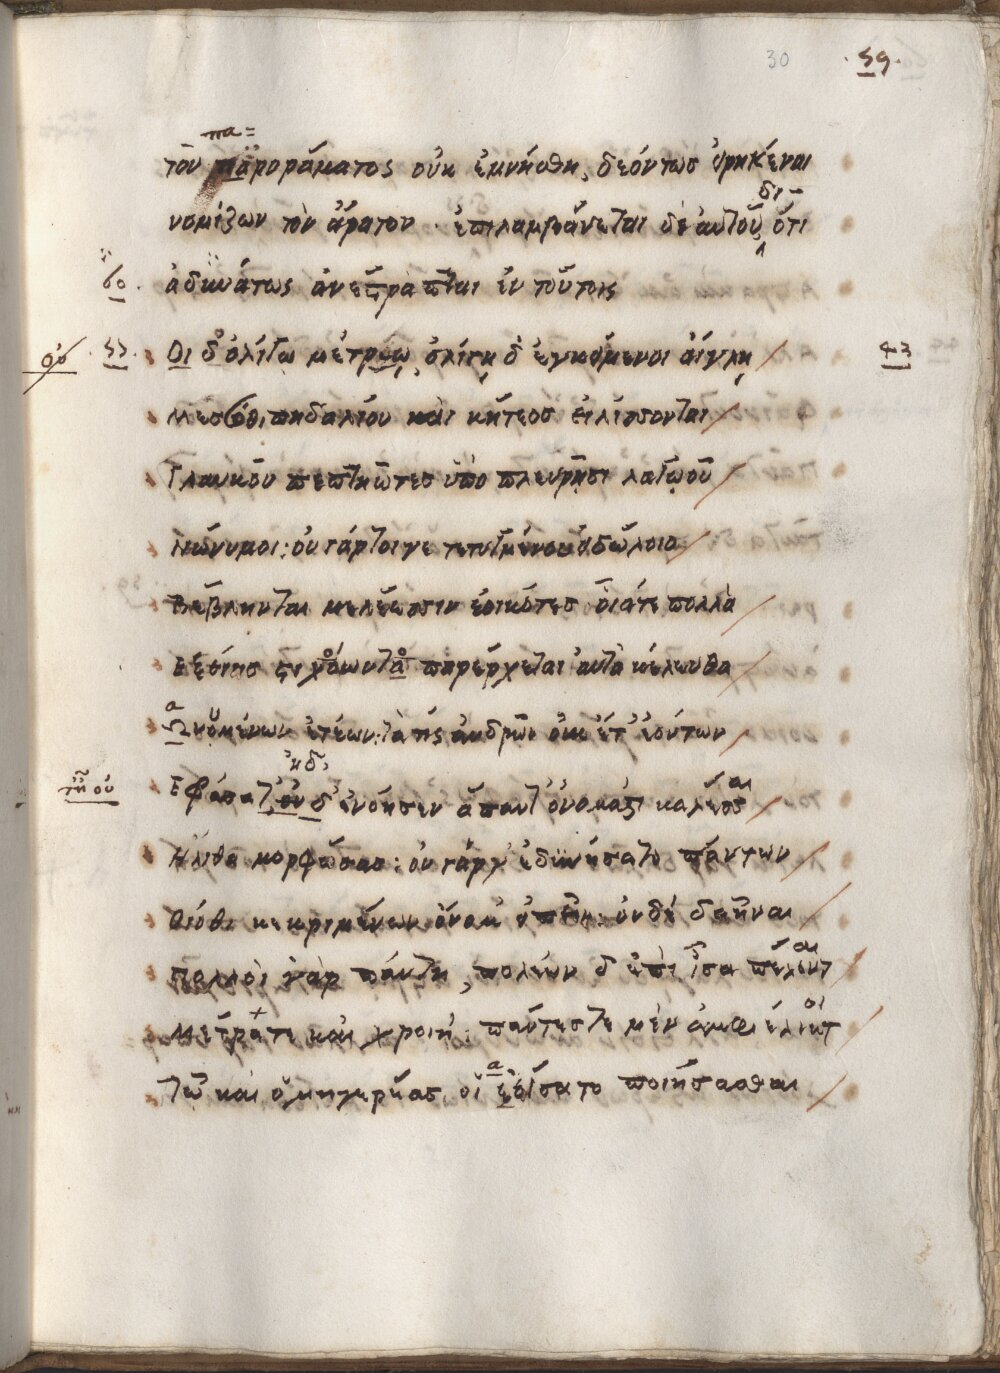 30 .59.
πα=
τοῦ παροράματος οὐκ ἐμνήσθη, δεόντως εἰρηκέναι
δι-
νομίζων τὸν ἄρατον · ἐπιλαμβάνεται δὲ αὐτοῦ, ὅτι
60. ἀδιανάτως ἀνέστραπται ἐν τούτοις
Οι δ' ὀλίγω μέτρω, ὀλίγη δ' ἐγκείμενοι αἴγλη / 43
Μεσσόθι πηδαλίου καὶ κήτεος εἱλίσσονται /
Γλαυκοῦ πεπτηῶτες ὑπὸ πλευρῆσι λαγωοῦ /
Νώνυμοι: οὐ γάρ τοι γε τετυγμένου εἰδώλοιο /
Βεβλῆνται μελέεσσιν ἐοικότες οἷά τε πολλὰ /
Εξείης στιχόωντα παρέρχεται αὐτὰ κέλευθα /
α
Ανομένων ἐτέων: τὰ τὶς ἀνδρῶν οὐκ ἔτ' ἐόντων /
ηδ'
Εφράσατ' οὐδ' ἐνόησεν ἅπαντ' ὀνομαστὶ καλέσσαι /
Ηλιθα μορφώσας: οὐ γάρ κ' ἐδυνήσατο πάντων /
Οιόθι κεκριμένων ὄνομ' εἰπεῖν: οὐδὲ δαῆναι /
Πολλοὶ γὰρ πάντη, πολέων δ' ἐπὶ ἶσα πέλονται /
Μέτρα τε καὶ χροιή: πάντες γε μὲν ἀμφιέλικτοι /
α
Τῶ καὶ ὁμηγερέας οἱ ἐείσατο ποιήσασθαι /